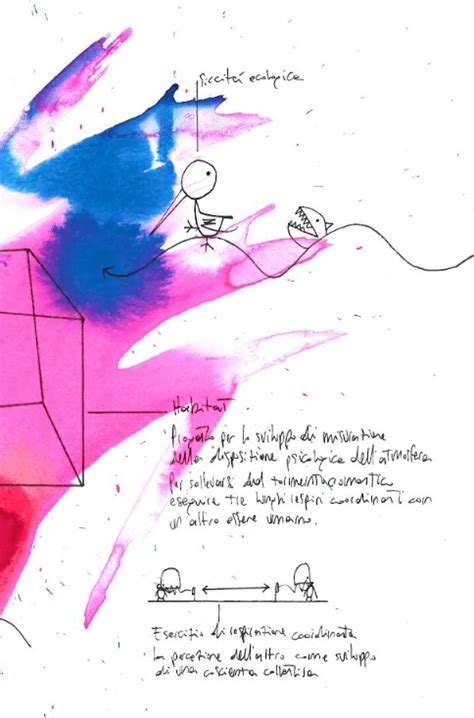 Siccità ecologica
Habitat
Progetto per lo sviluppo di misurazione
della disposizione psicologica dell'atmosfera
per sollevarsi dal
eseguire tre lunghi respiri coordinati con
un altro essere umano.
Esercizio di respirazione coordinata
la percezione dell'altro come sviluppo
di una coscienza collettiva